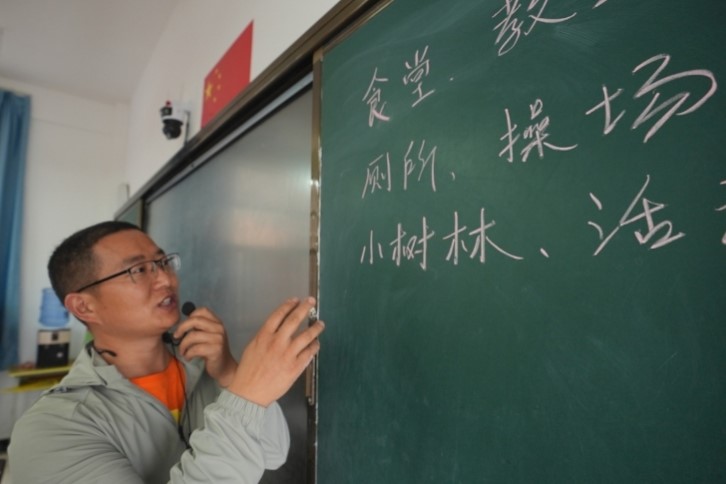 教
食堂.
厕所、操场
小树林、活